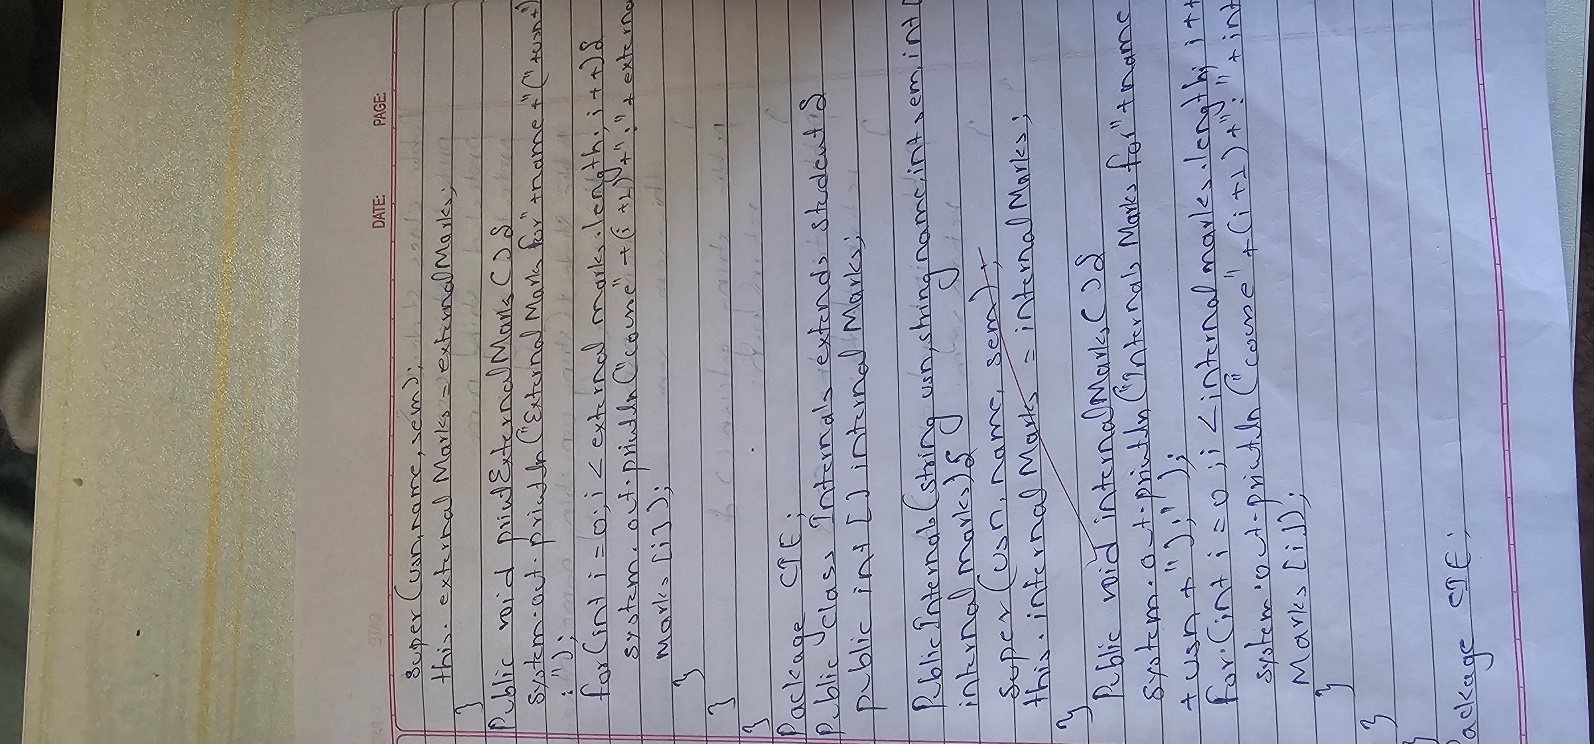 DATE: PAGE:
super (usn, name, sem);
this. external Marks = external Marks;
}
Public void print External Marks ( ) {
System. out. println ("External Marks for" + name + " (" + usn +
: ");
for (int i = 0; i < external marks. length; i + +) {
system. out. println ("course" + (i + 1) + ": " + externa
Marks [i]);
}
}
}
Package CIE;
Public class Internals extends student {
public int [ ] internal Marks;
Public Internals (string usn, string name, int sem, int [
internal marks) {
super (usn, name, sem);
this. internal Marks = internal Marks;
}
Public void internal Marks ( ) {
System. out. println ("Internals Marks for" + name
+ usn + "): ");
for (int i = 0; i < internal marks. length; i + +
system. out. println ("course" + (i + 1) + ": " + int
Marks [i]);
}
}
}
Package CIE;